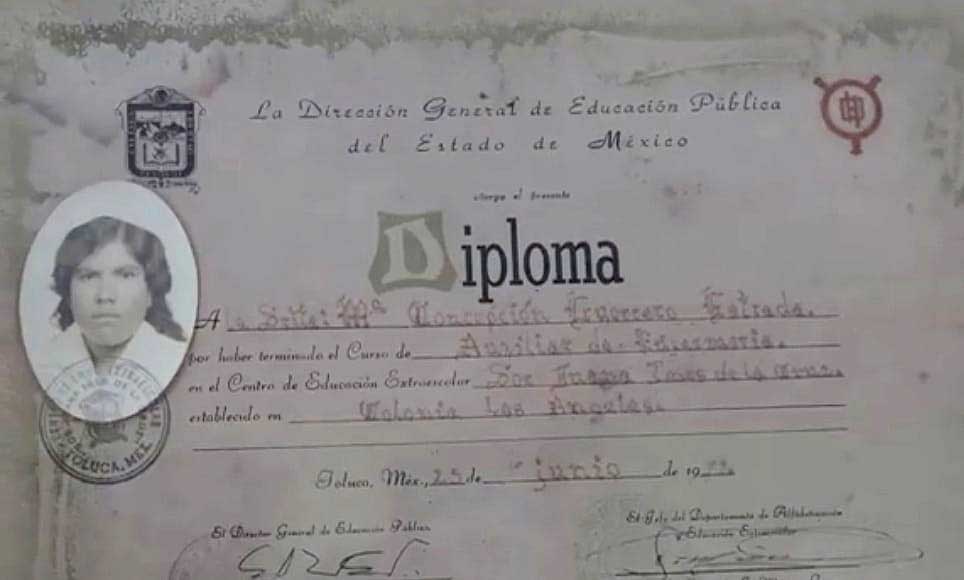 La Dirección General de Educación Pública
del Estado de México
otorga el presente
Diploma
A la Srita: Mª Concepción Guerrero Estrada.
por haber terminado el Curso de Auxiliar de Enfermería.
en el Centro de Educación Extraescolar Sor Juana Ines de la Cruz.
establecido en Colonia Los Angeles.
Toluca, Méx., 25 de junio de 19
El Director General de Educación Pública
El Jefe del Departamento de Alfabetización
y Educación Extraescolar
TOLUCA, MEX.